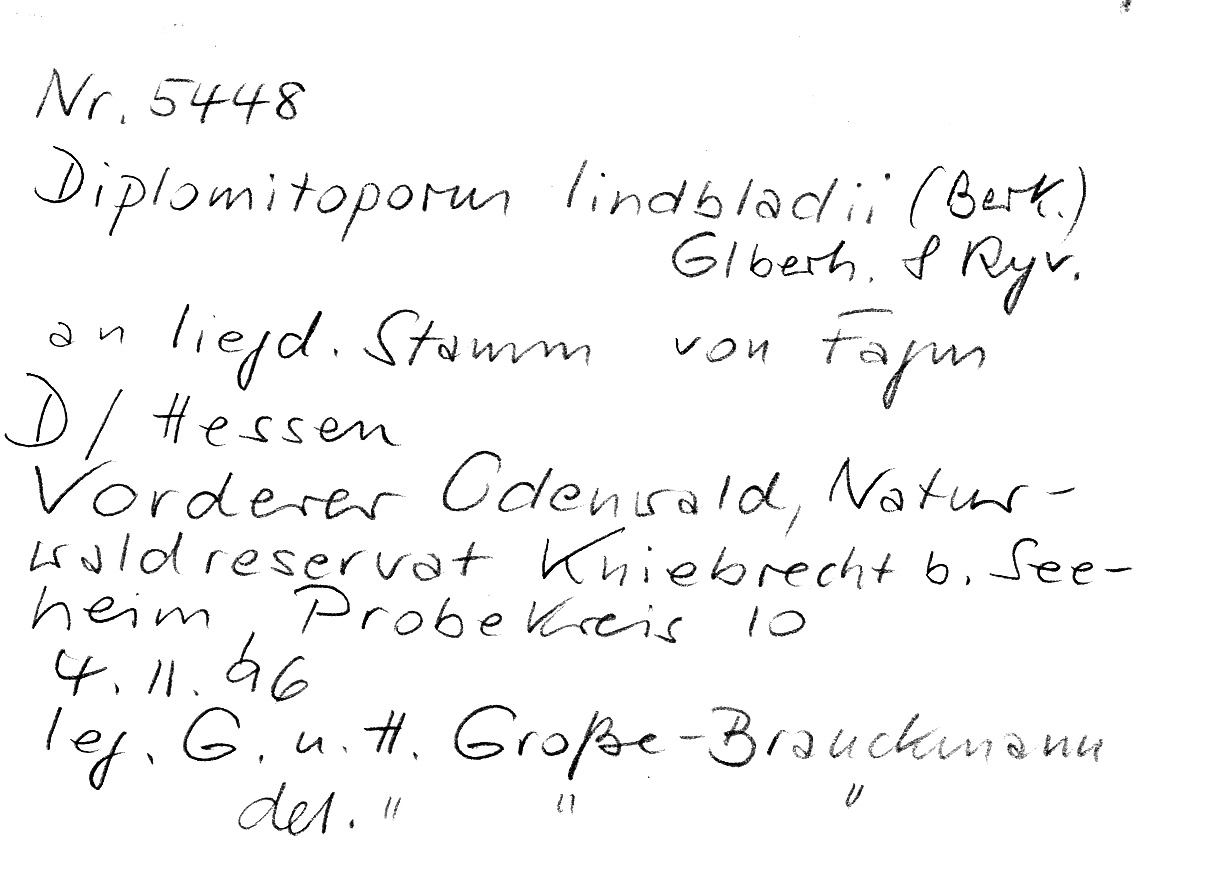 Nr. 5448
Diplomitoporus lindbladii (Berk.)
Glberh. & Ryv.
an liegd. Stamm von Fagus
D/Hessen
Vorderer Odenwald, Natur-
waldreservat Kniebrecht b. See-
heim, Probekreis 10
4.11.96
leg. G. u. H. Große-Brauckmann
det. " " "